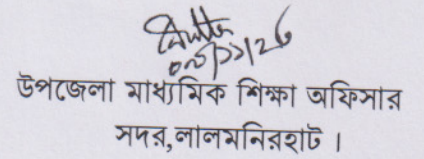 উপজেলা মাধ্যমিক শিক্ষা অফিসার
সদর,লালমনিরহাট ।